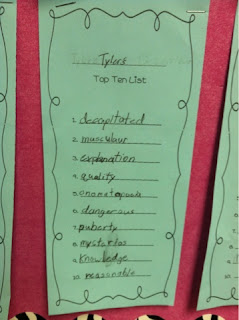 Tylers
Top Ten List
1. decapitated
2.
3. explanation
4. quality
5. onomatopoeia
6. dangerous
7. puberty
8. mysterios
9. knowledge
10. reasonable